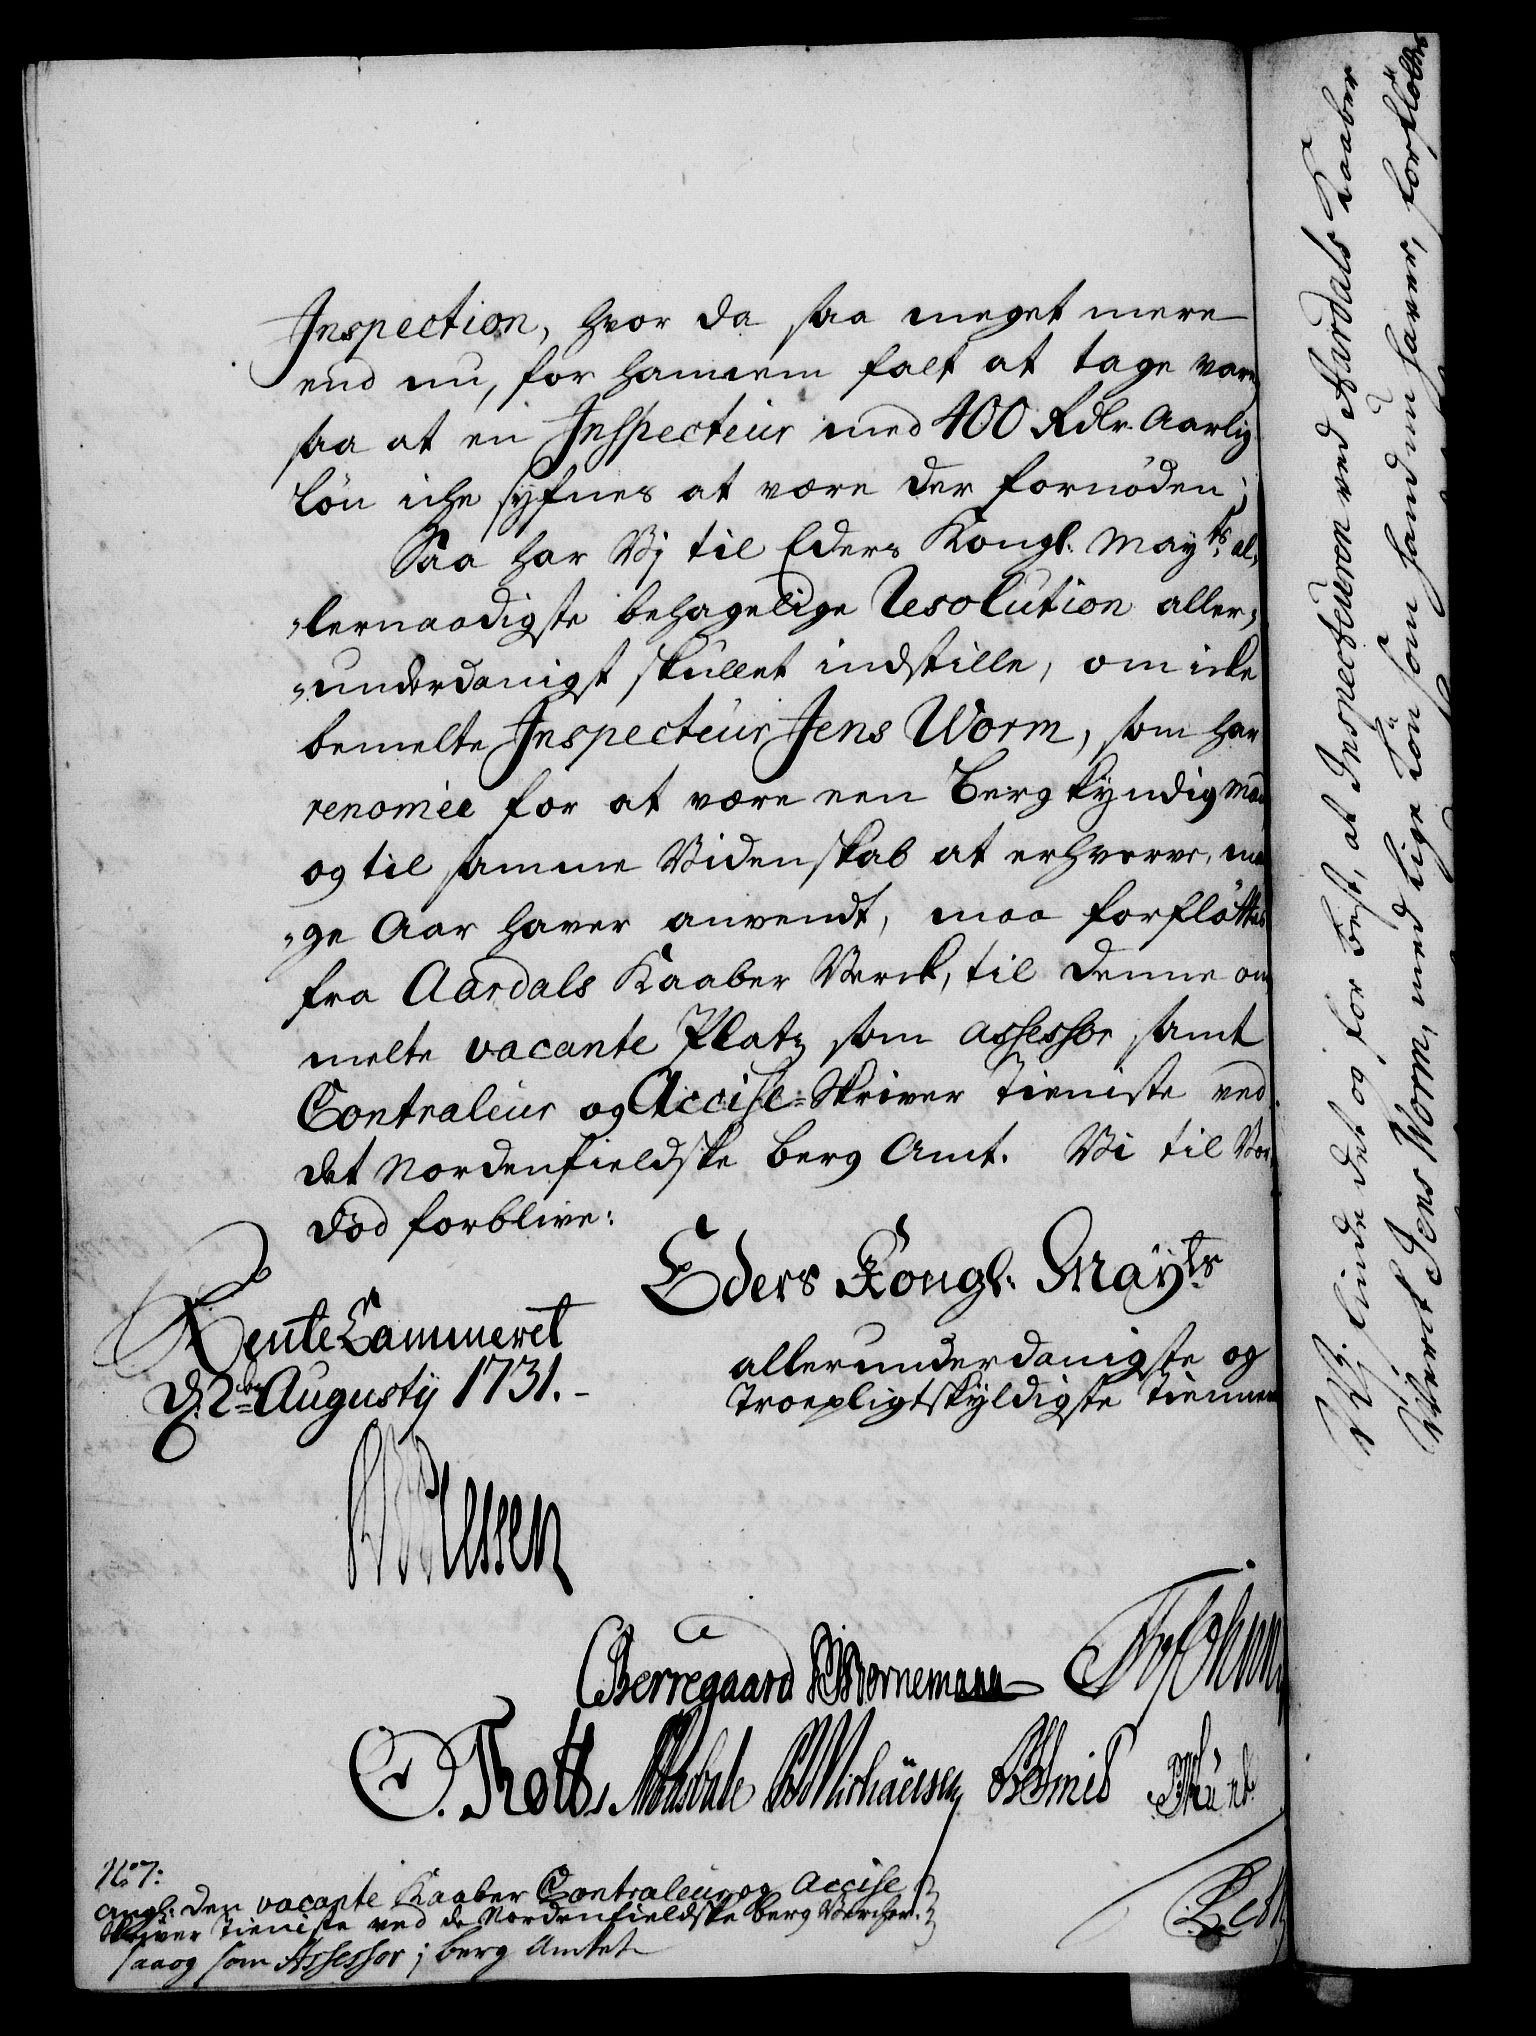 Inspection, hvor da saa meget mere
end nu, for hannem falt at tage vare
saa at en Inspecteur med 400 Rdlr. Aarlig
Lön iche syfnes at være der fornöden;
Saa har Vj til Eders Kongl. Mayts al-
lernaadigste behagelige Resolution aller-
underdanigst skullet indstille, om icke
bemelte Inspecteur Jens Worm, som har
renomèe for at være een Bergkyndig Mand
og til samme Videnskab at erhverve, man
ge Aar haver anvendt, maa forflöttes
fra Aardals Kaaber Verck, til denne om
melte vacante Platz som Assessor samt
Contraleur og Accise-Skriver Tieniste ved
det Nordenfieldske Berg Amt. Vi til Vor
död forblive:
Eders Kongl. Mayts
RenteCammeret
d. 2den Augustij 1731.
allerunderdanigste og
Troepligtskyldigste Tiennere
Plessen
Berregaard Bornemann
Trott
No 7:
angl: den vacante Kaaber Contraleur og Accise
Skriver Tieniste ved de Nordenfieldske Berg Vercher.
saaog som Assessor i Berg Amtet
Vj finde det og for best, at Inspecteuren ved Aardals Kaaber
Verck Jens Worm, med Lige Lön som hand nu haver, forflöttes